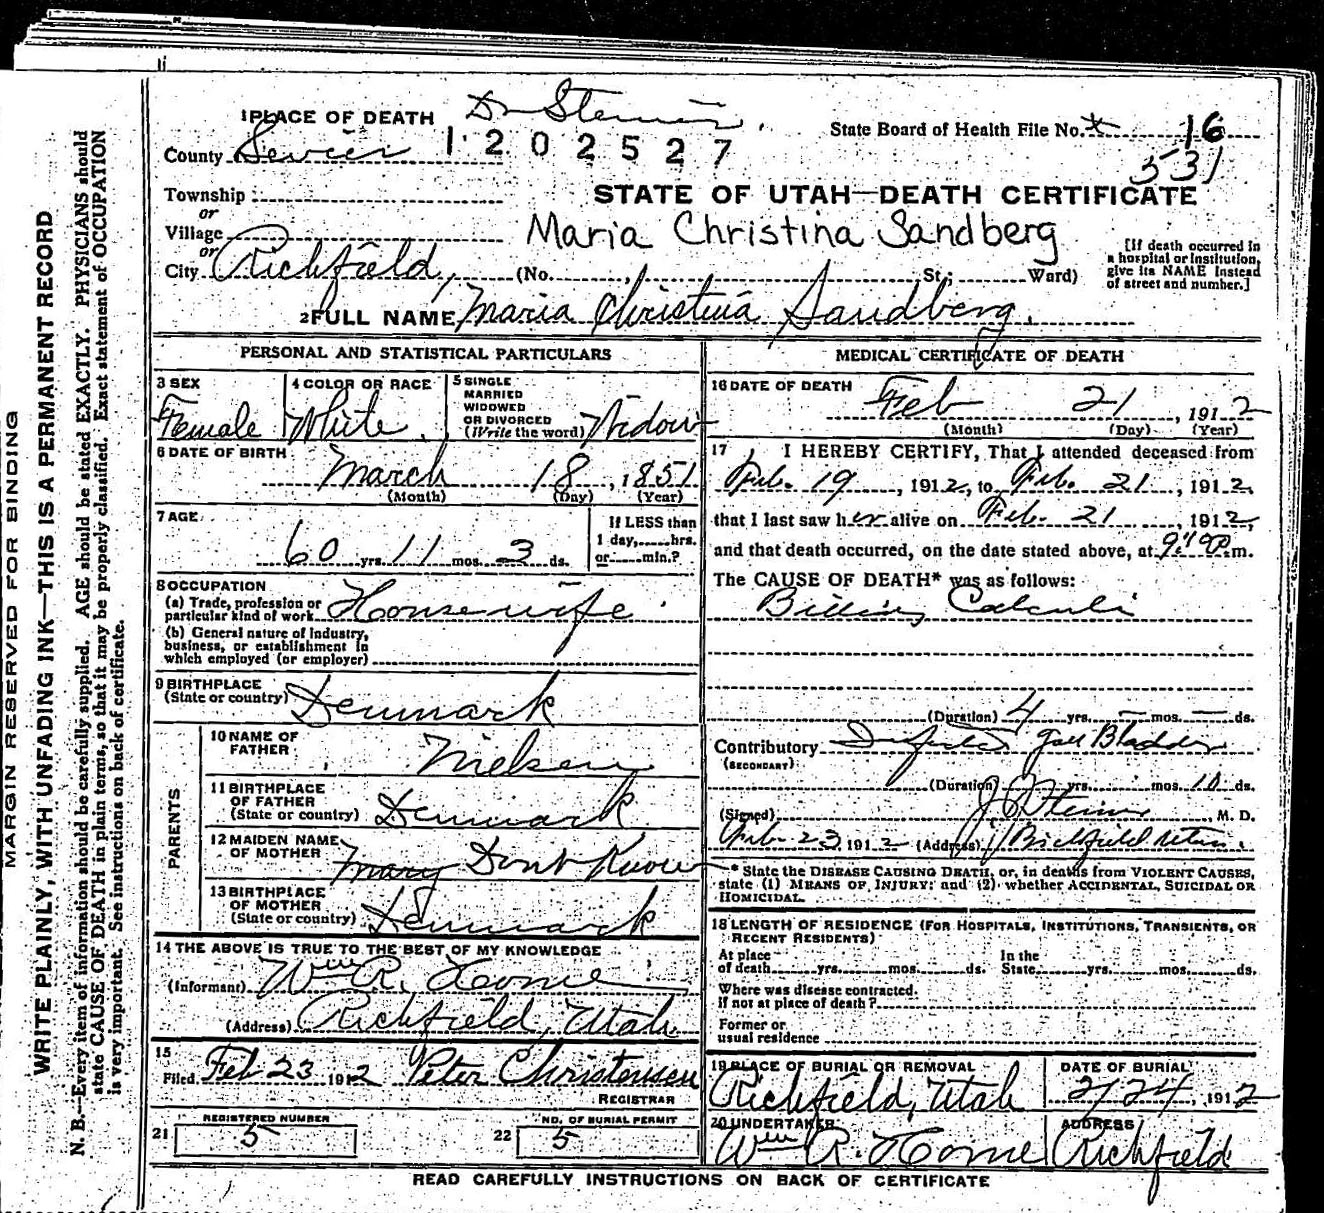 MARGIN RESERVED FOR BINDING
WRITE PLAINLY, WITH UNFADING INK—THIS IS A PERMANENT RECORD
N. B.—Every item of information should be carefully supplied. AGE should be stated EXACTLY. PHYSICIANS should
state CAUSE OF DEATH in plain terms, so that it may be properly classified. Exact statement of OCCUPATION
is very important. See instructions on back of certificate.
1 PLACE OF DEATH Dr Steiner.
State Board of Health File No. 16
531
County Sevier 1 2 0 2 5 2 7
Township
or
STATE OF UTAH—DEATH CERTIFICATE
Village
or
Maria Christina Sandberg
City Richfield, (No. , St.; Ward)
[If death occurred in
a hospital or institution,
give its NAME instead
of street and number.]
2 FULL NAME Maria Christina Sandberg.
PERSONAL AND STATISTICAL PARTICULARS
3 SEX
Female
4 COLOR OR RACE
White.
5 SINGLE
MARRIED
WIDOWED
OR DIVORCED
(Write the word) Widow
6 DATE OF BIRTH
March 18, 1851
(Month) (Day) (Year)
7 AGE
60 yrs. 11 mos. 3 ds.
If LESS than
1 day, hrs.
or min.?
8 OCCUPATION
(a) Trade, profession or
particular kind of work Housewife
(b) General nature of industry,
business, or establishment in
which employed (or employer)
9 BIRTHPLACE
(State or country) Denmark
PARENTS
10 NAME OF
FATHER Nielsen
11 BIRTHPLACE
OF FATHER
(State or country) Denmark
12 MAIDEN NAME
OF MOTHER Mary Dont Know
13 BIRTHPLACE
OF MOTHER
(State or country) Denmark
14 THE ABOVE IS TRUE TO THE BEST OF MY KNOWLEDGE
(Informant) Wm R. Horne
(Address) Richfield, Utah
15
Filed Feb 23 1912 Peter Christensen
REGISTRAR
REGISTERED NUMBER
21 5
NO. OF BURIAL PERMIT
22 5
MEDICAL CERTIFICATE OF DEATH
16 DATE OF DEATH
Feb 21, 1912
(Month) (Day) (Year)
17 I HEREBY CERTIFY, That I attended deceased from
Feb. 19, 1912, to Feb. 21, 1912,
that I last saw her alive on Feb. 21, 1912,
and that death occurred, on the date stated above, at P.m.
The CAUSE OF DEATH* was as follows:
Biliary Calculi
(Duration) 4 yrs. – mos. – ds.
Contributory Infected Gall Bladder
(SECONDARY)
(Duration) yrs. mos. 10 ds.
(Signed) Steiner, M. D.
Feb. 23, 1912 (Address) Richfield Utah.
* State the DISEASE CAUSING DEATH, or, in deaths from VIOLENT CAUSES,
state (1) MEANS OF INJURY; and (2) whether ACCIDENTAL, SUICIDAL OR
HOMICIDAL.
18 LENGTH OF RESIDENCE (FOR HOSPITALS, INSTITUTIONS, TRANSIENTS, OR
RECENT RESIDENTS)
At place
of death yrs. mos. ds.
In the
State yrs. mos. ds.
Where was disease contracted.
if not at place of death?
Former or
usual residence
19 PLACE OF BURIAL OR REMOVAL
Richfield, Utah
DATE OF BURIAL
2/24, 1912
20 UNDERTAKER
Wm R. Horne
ADDRESS
Richfield
READ CAREFULLY INSTRUCTIONS ON BACK OF CERTIFICATE